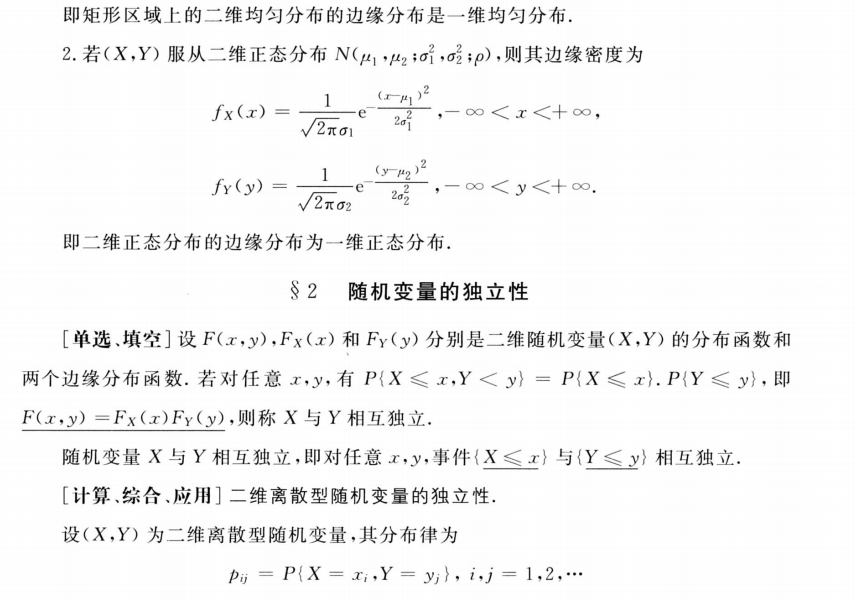 即矩形区域上的二维均匀分布的边缘分布是一维均匀分布.
2. 若(X,Y) 服从二维正态分布 N(μ₁,μ₂;σ₁²,σ₂²;ρ),则其边缘密度为
f_X(x) = \frac{1}{\sqrt{2π}σ₁}e^{-\frac{(x-μ₁)²}{2σ₁²}},-∞<x<+∞,
f_Y(y) = \frac{1}{\sqrt{2π}σ₂}e^{-\frac{(y-μ₂)²}{2σ₂²}},-∞<y<+∞.
即二维正态分布的边缘分布为一维正态分布.
§2 随机变量的独立性
[单选、填空] 设 F(x,y),F_X(x) 和 F_Y(y) 分别是二维随机变量(X,Y) 的分布函数和
两个边缘分布函数. 若对任意 x,y,有 P{X ⩽ x,Y < y} = P{X ⩽ x}. P{Y ⩽ y},即
F(x,y) = F_X(x)F_Y(y),则称 X 与 Y 相互独立.
随机变量 X 与 Y 相互独立,即对任意 x,y,事件{X ⩽ x} 与{Y ⩽ y} 相互独立.
[计算、综合、应用] 二维离散型随机变量的独立性.
设(X,Y) 为二维离散型随机变量,其分布律为
p_{ij} = P{X = x_i,Y = y_j}, i,j = 1,2,⋯